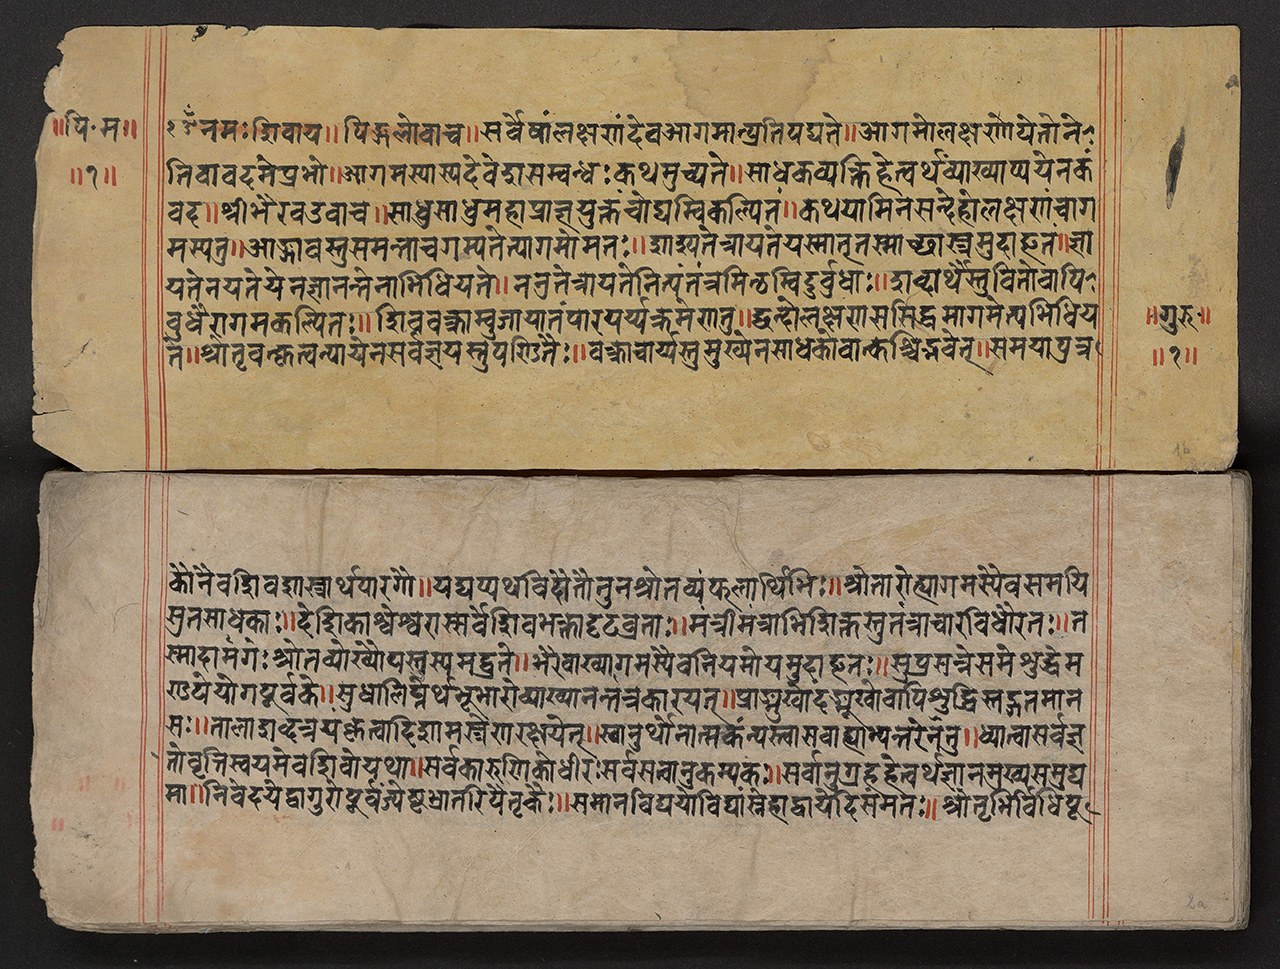 ॥पि·म॥
॥१॥
१ॐ नमः शिवाय॥ पिङ्गलोवाच॥ सर्वेषां लक्षणं देव आगमान्प्रतिपद्यते॥ आगमो लक्षणो येतो ने
ति वा वद मे प्रभो॥ आगमस्यास्य देवेश सम्बन्धः कथमुच्यते॥ साधकव्यक्तिहेत्वर्थं व्याख्याप्ययेनकं
वद॥ श्रीभैरव उवाच॥ साधु साधु महाप्राज्ञ युक्तं चोद्यम्विकल्पितं॥ कथयामि न सन्देहो लक्षणं चाग
मस्य तु॥ आज्ञा वस्तु समन्ताच गम्यतेत्यागमो मतः॥ शास्यते त्रायते यस्मात् तस्माच्छास्त्रमुदाहृतं॥ ज्ञा
यते नयते येन ज्ञानन्तेनाभिधियते॥ तनुते त्रायते नित्यं तन्त्रमित्थम्विदुर्बुधाः॥ शब्दार्थैस्तु विना वापि
बुधैरागमकल्पितः॥ शिववक्त्राम्बुजायातं पारंपर्य्यक्रमेण तु॥ छन्दोलक्षणसंसिद्धमागमेत्यभिधिय
ते॥ श्रोतृवक्तृत्वन्यायेन सर्वज्ञयस्तु पण्डितैः॥ वक्त्राचार्यस्तु मुख्येन साधको वा क्वचिद्भवेत्॥ समयीपुत्र
॥गुरु॥
॥१॥
कौनैव शिवशास्त्रार्थपारगौ॥ यद्यप्यथविदौतौतु न श्रोतव्यं फलार्थिभिः॥ श्रोतारोह्यागमस्यैव समयि
पुत्रसाधकाः॥ देशिकाश्चेश्वरास्सर्वे शिवभक्ता दृढव्रताः॥ मन्त्रीमन्त्राभिशिक्तस्तु तन्त्राचारविधौ रतः॥ त
स्मादामंगः श्रोतव्याख्यौघस्तस्य मद्भुते॥ भैरवाख्यागमस्यैव नियमोयमुदाहृतः॥ सुप्रसन्ने समे शुद्धे म
ण्डपे योगपूर्वके॥ सुधालिप्तेर्थभूभारो व्याख्यानन्तत्र कारयेत्॥ प्राङ्मुखोदङ्मुखो वापि शुद्धिस्तद्गतमान
सः॥ तालाशब्दत्रयं कृत्वा दिशामस्त्रेण रक्षयेत्॥ स्वानुर्थोनात्मकं न्यस्त्वा सबाह्याभ्यन्तरेन तु॥ ध्यात्वा सर्वज्ञ
तोवृत्तिस्वयमेव शिवो यथा॥ सर्वकारुणिको धीरः सर्वसत्वानुकम्पकः॥ सर्वानुग्रहहेत्वर्थं ज्ञानमुख्यसमुद्य
मा॥ निवेदयेद्वा गुरोः पूर्वं ज्येष्ठभ्रातरि पैतृकैः॥ समानविद्ययो विद्यां स्नेहाद्वा यदि संमतः॥ श्रोतृभिर्विधिपू